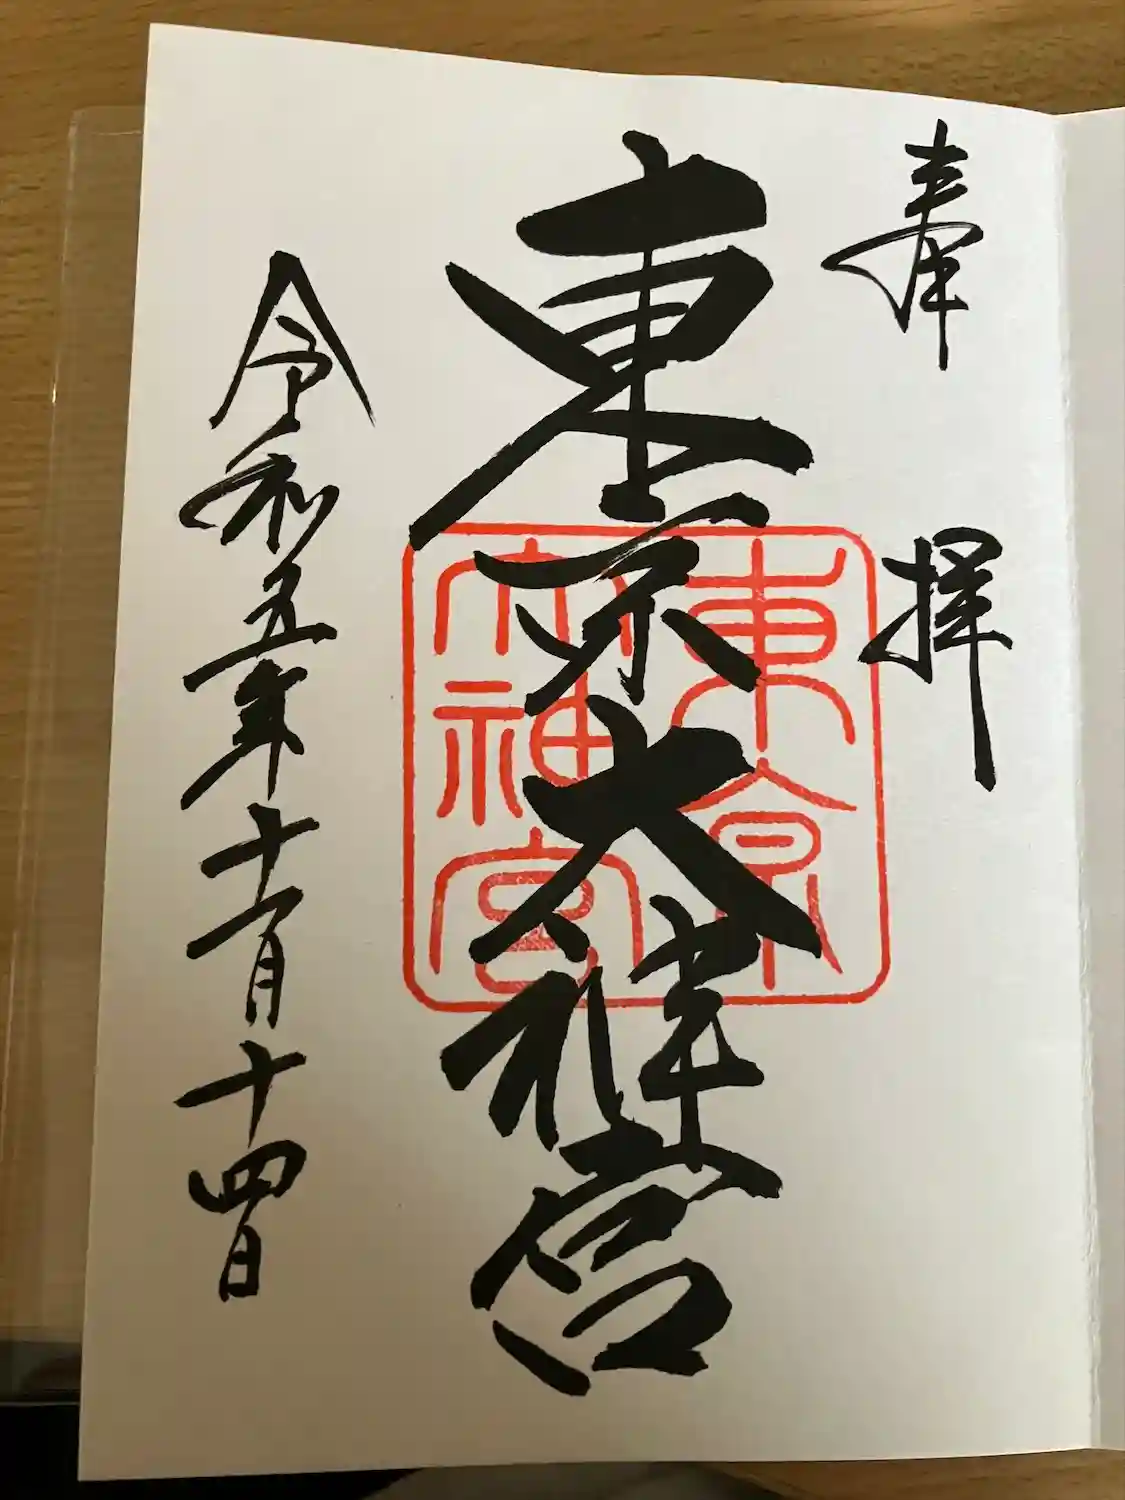 奉拝
東京大神宮
東京
大神宮
令和五年十一月十四日